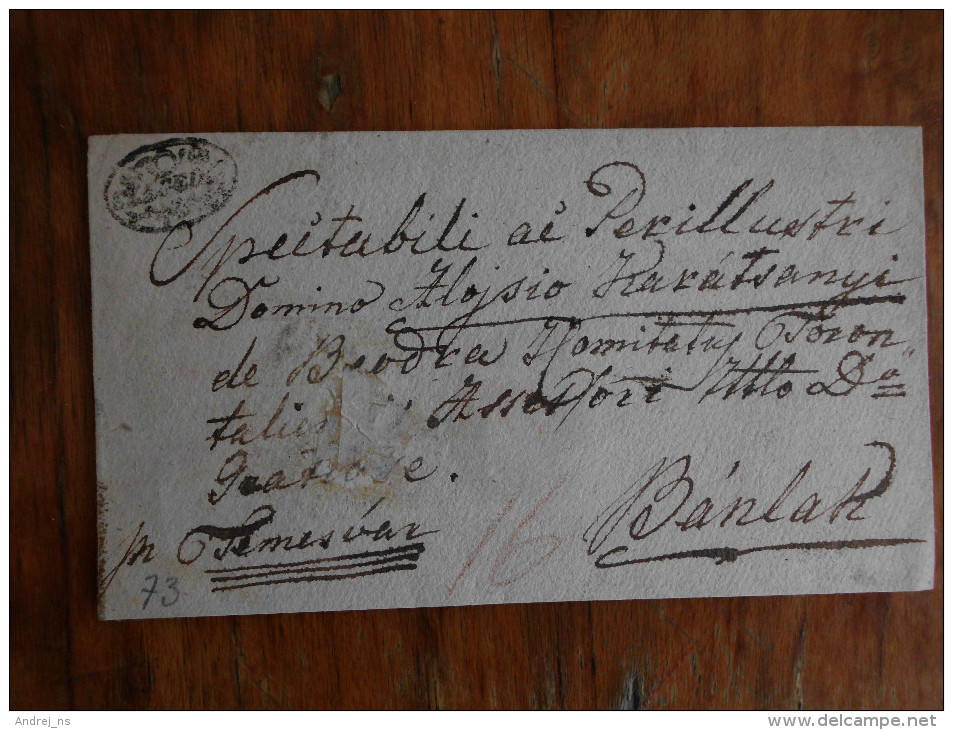 Spectabili ac Perillustri
Domino Alojsio Karátsanyi
de Beodra Komitatus Toron„
Assessori Dno
Gratiose.
Bánlak
pr Temesvár
16
73
Andrej_ns
www.delcampe.net